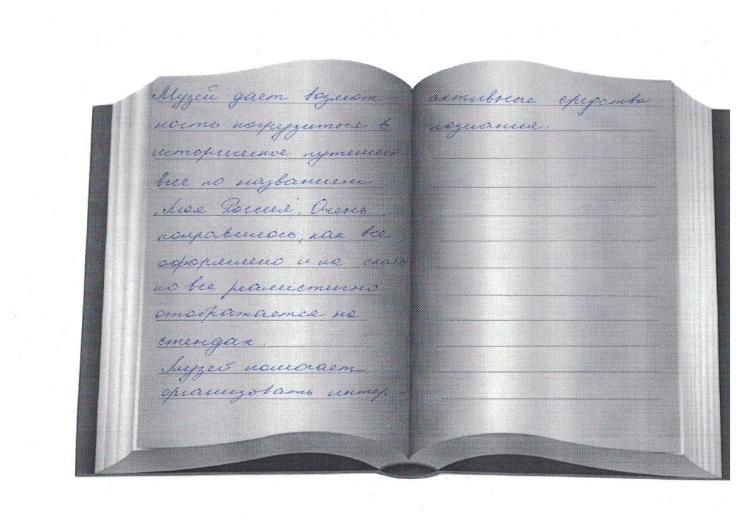 Музей дает возмож
ность погрузиться в
историческое путешест
вие по названием
„Моя Россия". Очень
понравилось, как все
оформлено и на сколь
ко все реалистично
отображается на
стендах.
Музей помогает
организовать интер-
активные средства
познания.